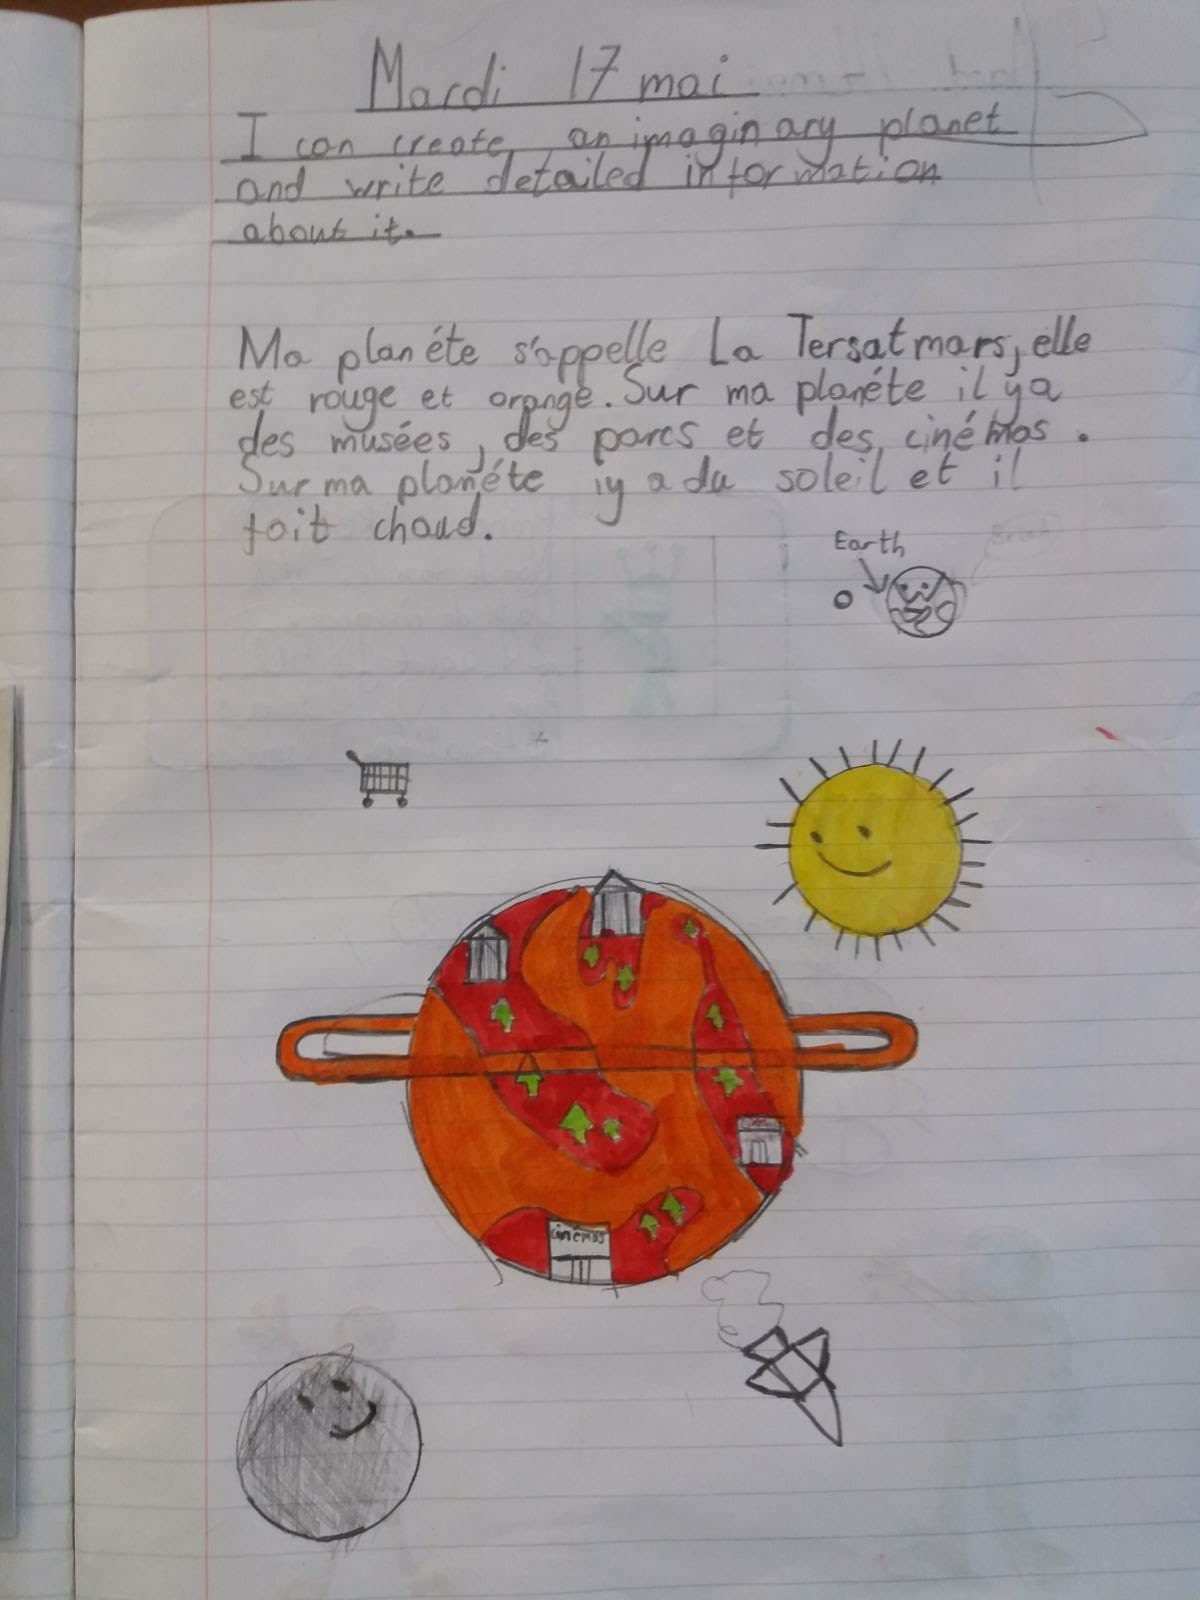 Mardi 17 mai
I can create an imaginary planet
and write detailed information
about it.
Ma planéte s'appelle La Tersatmars, elle
est rouge et orange. Sur ma planéte il y a
des musées, des parcs et des cinémas.
Sur ma planéte iy a du soleil et il
fait chaud.
Earth
cinémas